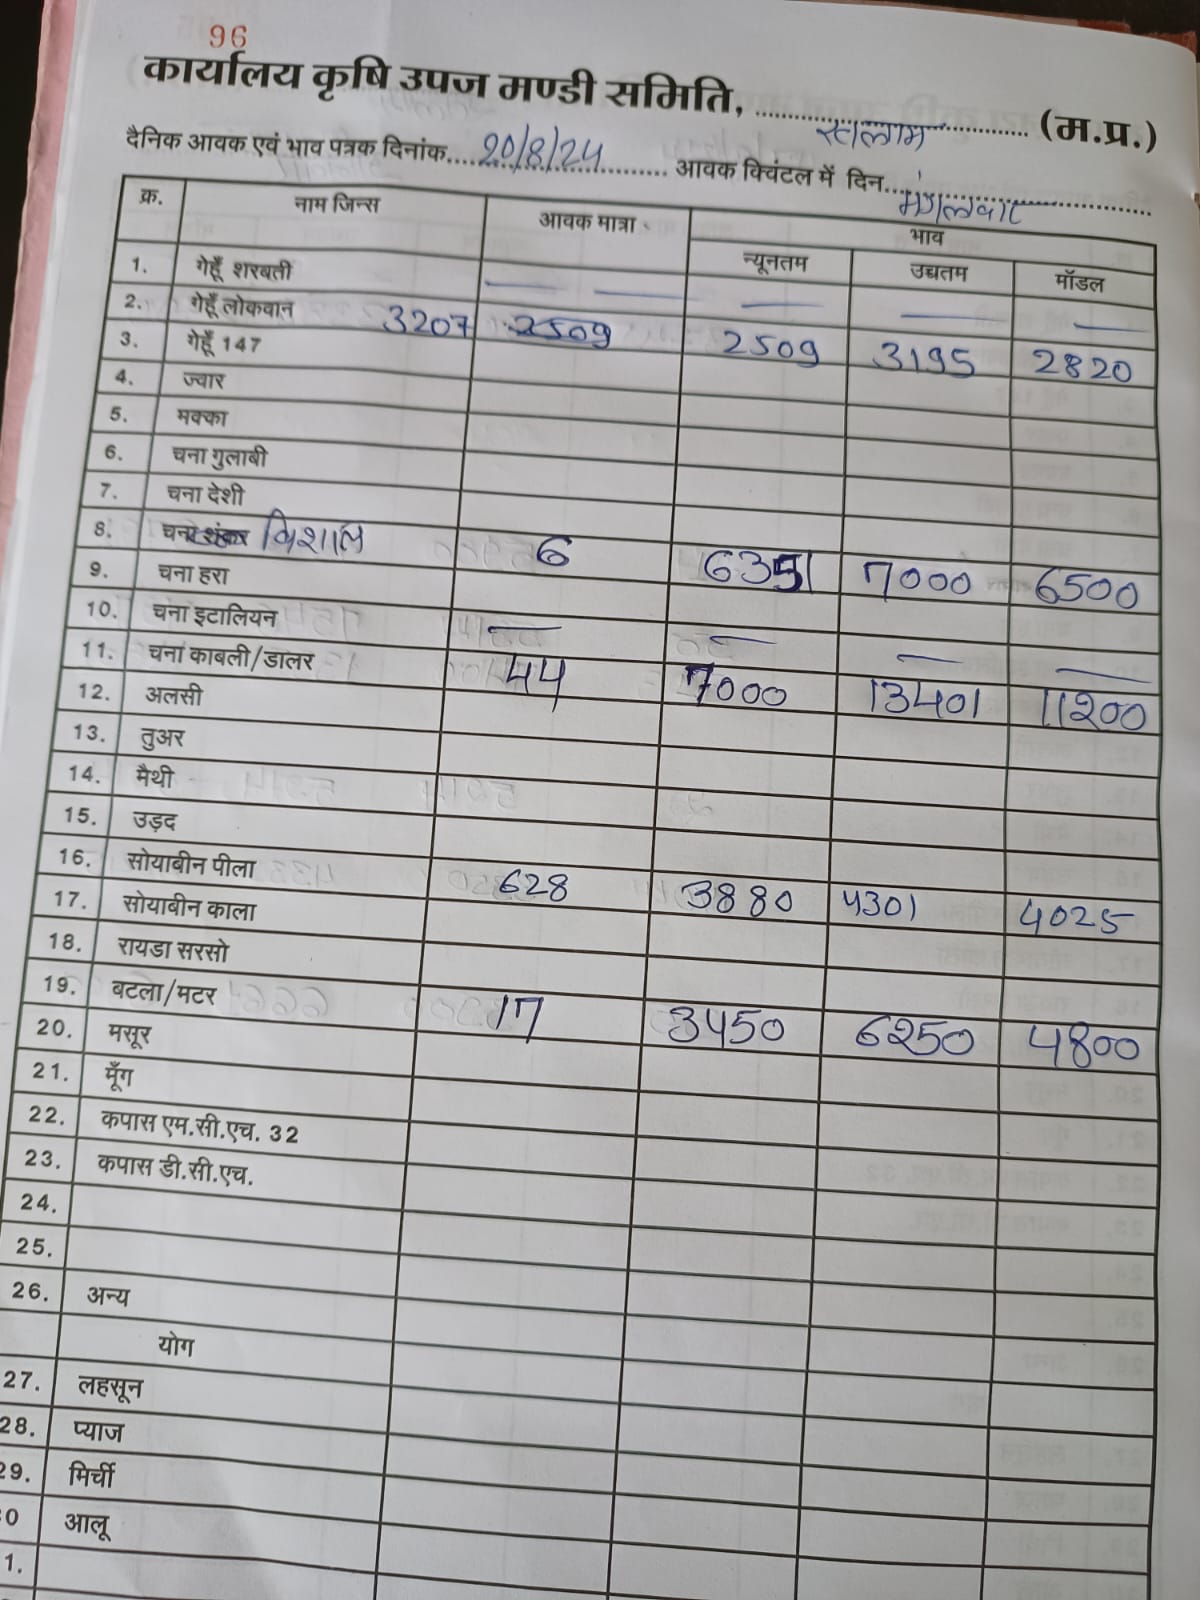 96
कार्यालय कृषि उपज मण्डी समिति, रतलाम (म.प्र.)
दैनिक आवक एवं भाव पत्रक दिनांक....20/8/24.... आवक क्विंटल में दिन...मंगलवार...
क्र. नाम जिन्स आवक मात्रा भाव
न्यूनतम उच्चतम मॉडल
1. गेहूँ शरबती — — — — —
2. गेहूँ लोकवान 3207 2509 2509 3195 2820
3. गेहूँ 147
4. ज्वार
5. मक्का
6. चना गुलाबी
7. चना देशी
8. चना शंकर विशाल 6 6351 7000 6500
9. चना हरा
10. चना इटालियन — — — —
11. चना काबली/डालर 44 7000 13401 11200
12. अलसी
13. तुअर
14. मैथी
15. उड़द
16. सोयाबीन पीला 628 3880 4301 4025
17. सोयाबीन काला
18. रायडा सरसो
19. बटला/मटर 17 3450 6250 4800
20. मसूर
21. मूँग
22. कपास एम.सी.एच. 32
23. कपास डी.सी.एच.
24.
25.
26. अन्य
योग
27. लहसून
28. प्याज
29. मिर्ची
30 आलू
1.